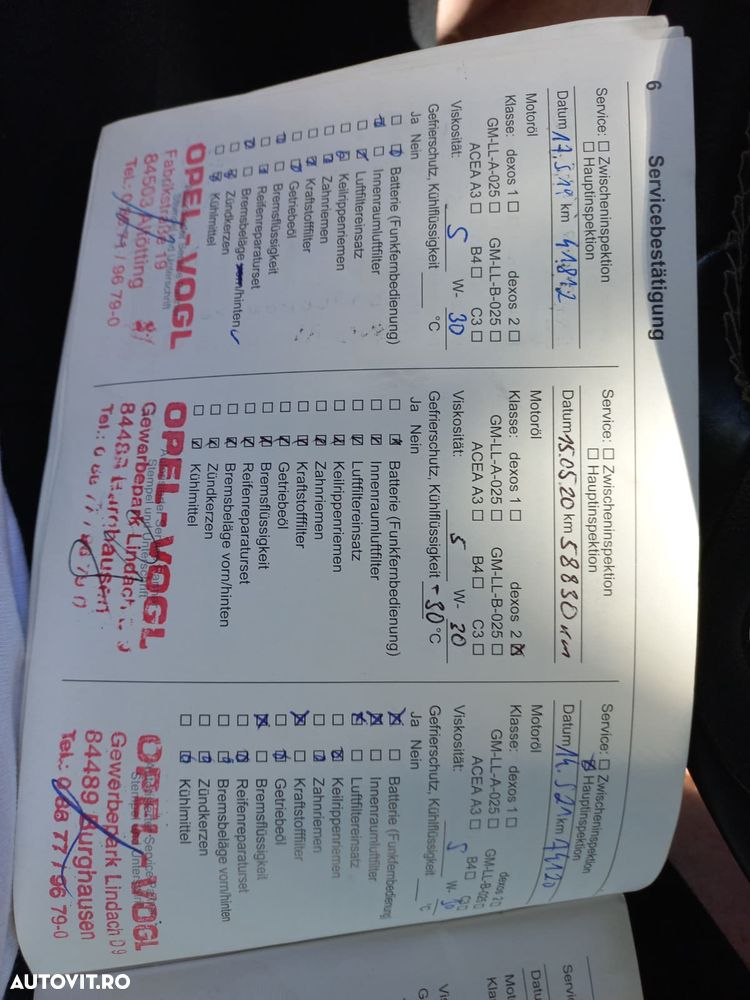 6 Servicebestätigung
Service: ☐ Zwischeninspektion
☐ Hauptinspektion
Datum 17.5.19 km 41.812
Motoröl
Klasse: dexos 1 ☐ dexos 2 ☐
GM-LL-A-025 ☐ GM-LL-B-025 ☐
ACEA A3 ☐ B4 ☐ C3 ☐
Viskosität: 5 W- 30
Gefrierschutz, Kühlflüssigkeit °C
Ja Nein
Batterie (Funkfernbedienung)
Innenraumluftfilter
Luftfiltereinsatz
Keilrippenriemen
Zahnriemen
Kraftstofffilter
Getriebeöl
Bremsflüssigkeit
Reifenreparaturset
Bremsbeläge vorn/hinten
Zündkerzen
Kühlmittel
OPEL-VOGL
Fabrikstraße 19
84503 Altötting
/ 96 79-0
Service: ☐ Zwischeninspektion
☐ Hauptinspektion
Datum 15.05.20 km 58830 km
Motoröl
Klasse: dexos 1 ☐ dexos 2 ☒
GM-LL-A-025 ☐ GM-LL-B-025 ☐
ACEA A3 ☐ B4 ☐ C3 ☐
Viskosität: 5 W-
Gefrierschutz, Kühlflüssigkeit - 30 °C
Ja Nein
Batterie (Funkfernbedienung)
Innenraumluftfilter
Luftfiltereinsatz
Keilrippenriemen
Zahnriemen
Kraftstofffilter
Getriebeöl
Bremsflüssigkeit
Reifenreparaturset
Bremsbeläge vorn/hinten
Zündkerzen
Kühlmittel
OPEL-VOGL
Gewerbepark Lindach
84489 Burghausen
Service: ☐ Zwischeninspektion
☒ Hauptinspektion
Datum 14.5.21 km 74120
Motoröl
Klasse: dexos 1 ☐ dexos 2 ☐
GM-LL-A-025 ☐ GM-LL-B-025 ☐
ACEA A3 ☐ B4 ☐ C3
Viskosität: 5 W- 30
Gefrierschutz, Kühlflüssigkeit °C
Ja Nein
Batterie (Funkfernbedienung)
Innenraumluftfilter
Luftfiltereinsatz
Keilrippenriemen
Zahnriemen
Kraftstofffilter
Getriebeöl
Bremsflüssigkeit
Reifenreparaturset
Bremsbeläge vorn/hinten
Zündkerzen
Kühlmittel
OPEL-VOGL
Gewerbepark Lindach D 9
84489 Burghausen
Tel.: 0 86 77 / 96 79-0
AUTOVIT.RO